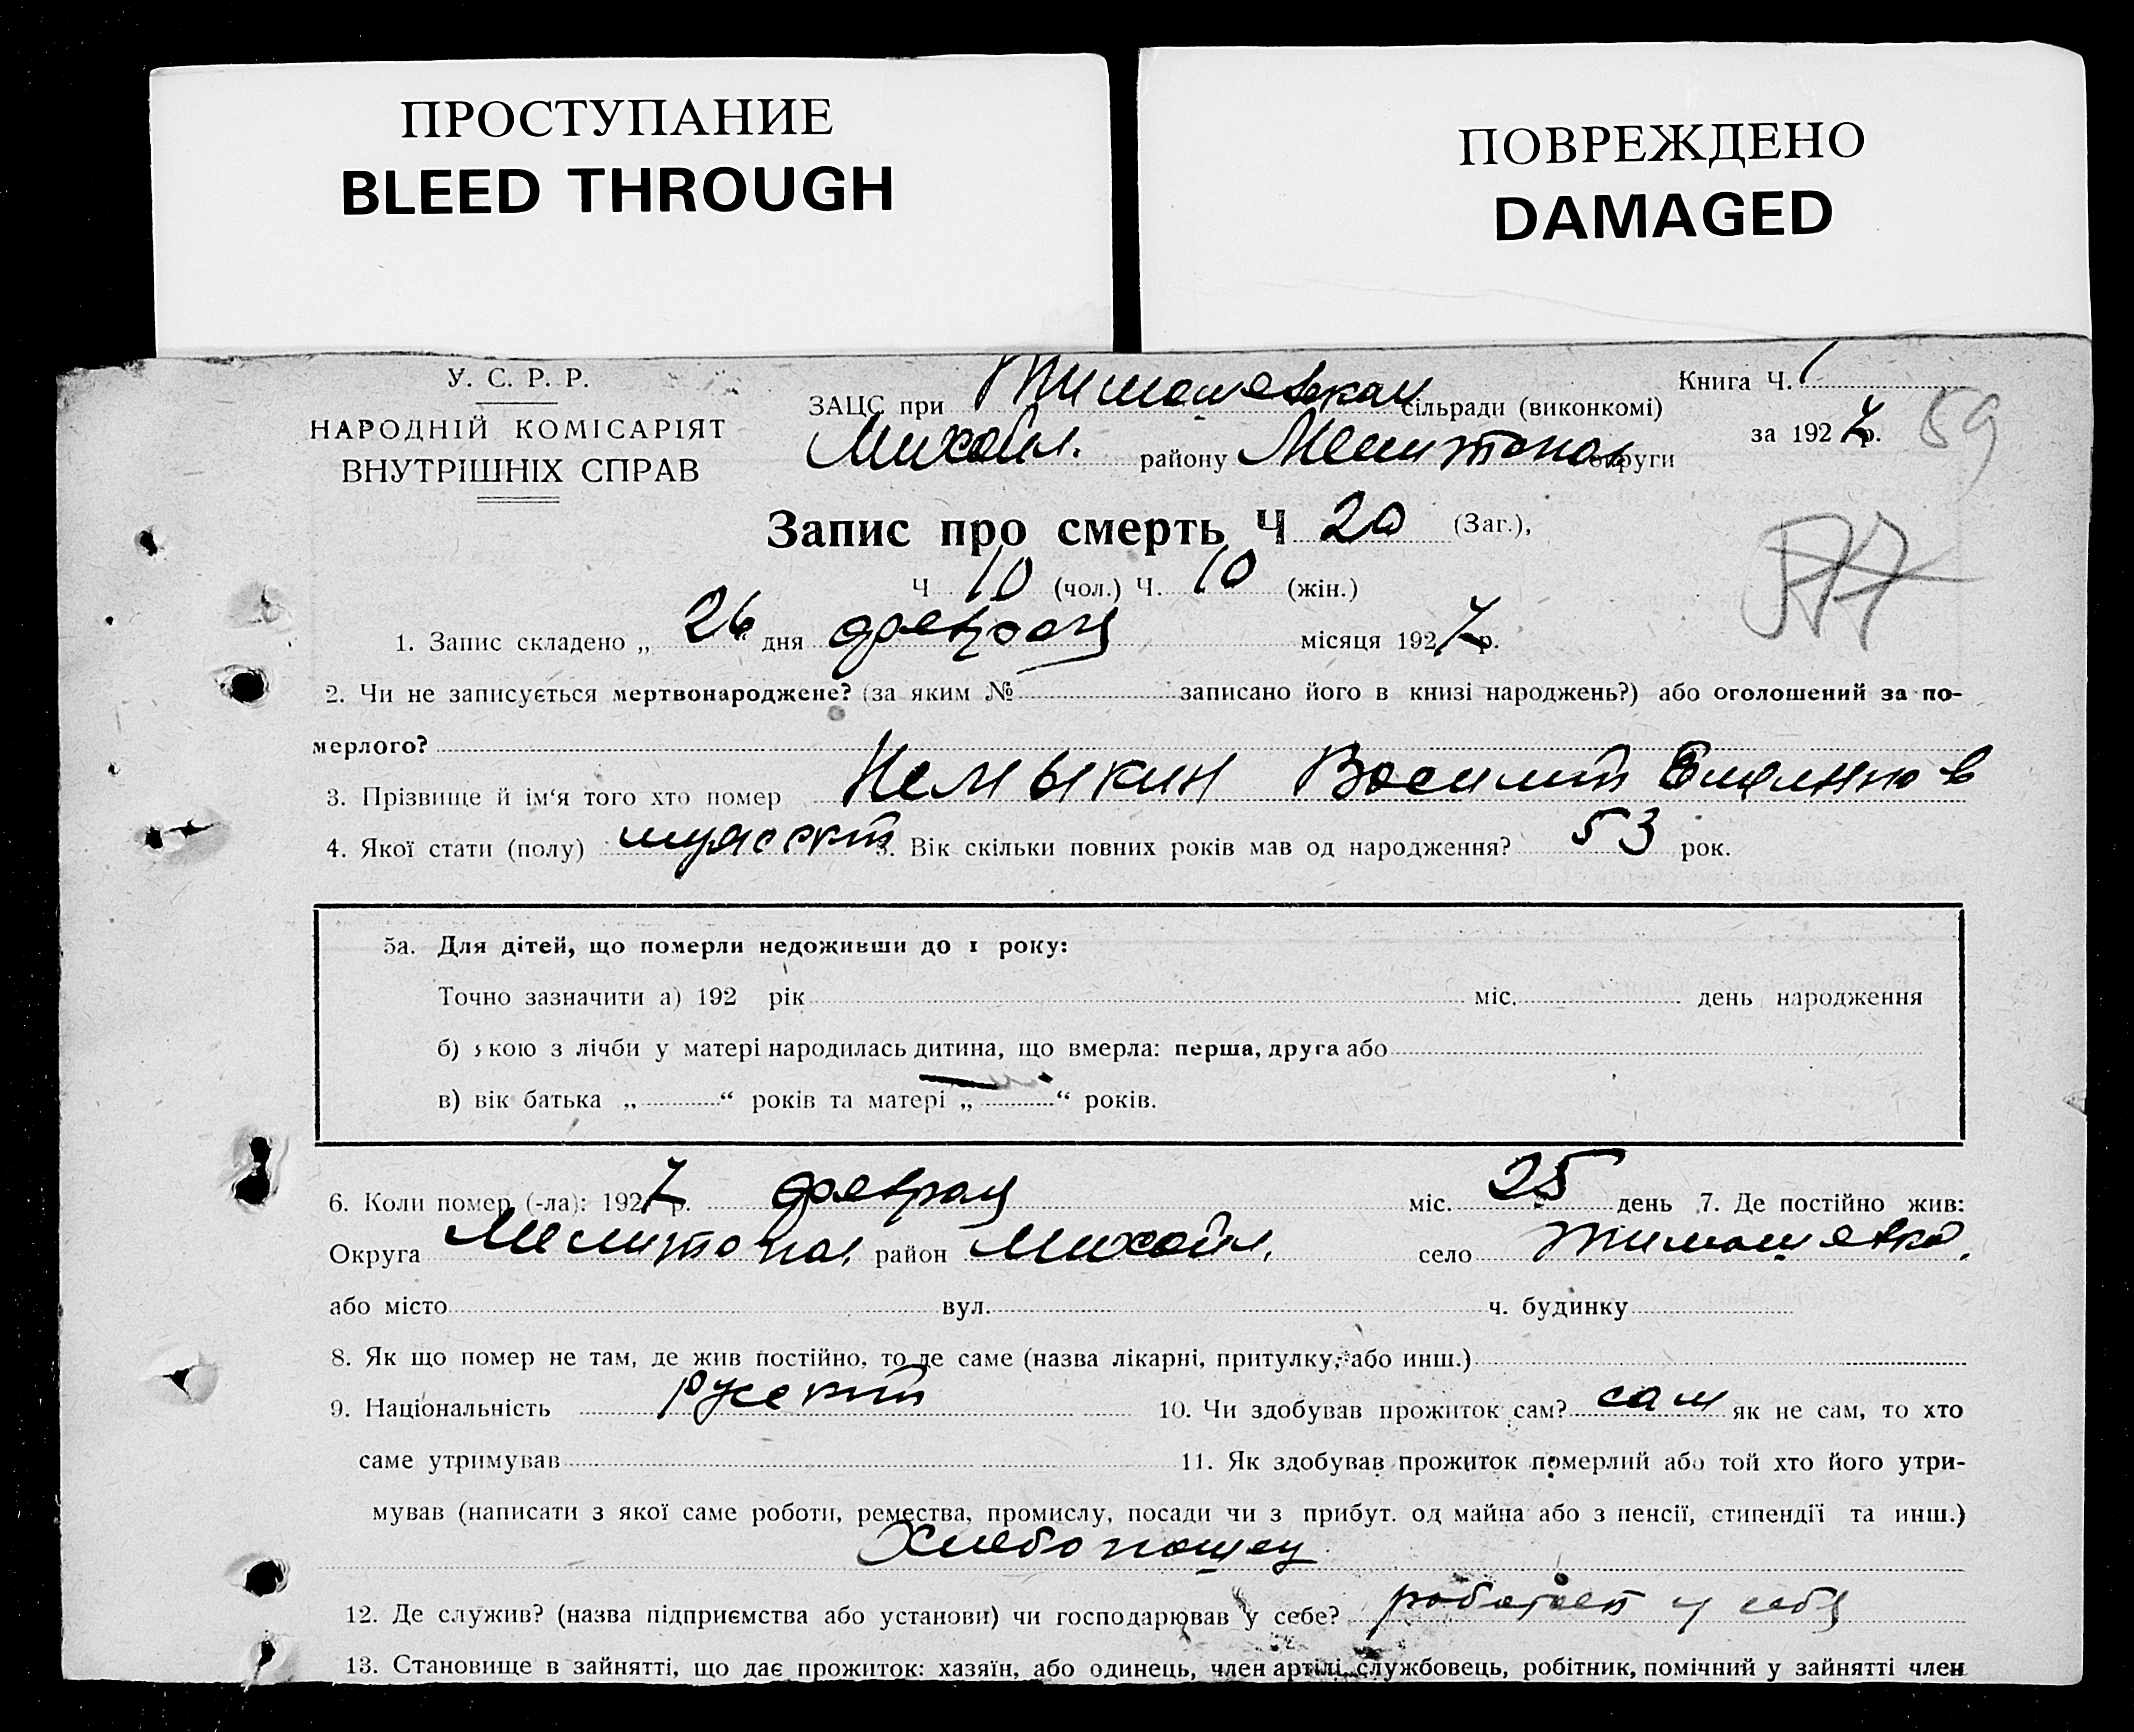 ПРОСТУПАНИЕ
BLEED THROUGH
ПОВРЕЖДЕНО
DAMAGED
У. С. Р. Р.
НАРОДНІЙ КОМІСАРІЯТ
ВНУТРІШНІХ СПРАВ
Книга Ч. 1
ЗАЦС при Тимошевкаи сільради (виконкомі)
за 1927 р. 59
Михайл. району Мелитопол округи
Запис про смерть Ч 20 (Заг.),
Ч 10 (чол.) Ч. 10 (жін.)
1. Запис складено „ 26 " дня февраля місяця 1927 р.
2. Чи не записується мертвонароджене? (за яким № записано його в книзі народжень?) або оголошений за по-
мерлого?
3. Прізвище й ім'я того хто помер Немыкин Василий
4. Якої стати (полу) мужеский 5. Вік скільки повних років мав од народження? 53 рок.
5а. Для дітей, що померли недоживши до 1 року:
Точно зазначити а) 192 рік міс. день народження
б) якою з лічби у матері народилась дитина, що вмерла: перша, друга або
в) вік батька „ “ років та матері „ “ років.
6. Коли помер (-ла): 1927 р. февраля міс. 25 день 7. Де постійно жив:
Округа Мелитопол. район Михайл. село Тимошевка.
або місто вул. ч. будинку
8. Як що помер не там, де жив постійно, то де саме (назва лікарні, притулку, або инш.)
9. Національність русский 10. Чи здобував прожиток сам? сам як не сам, то хто
саме утримував 11. Як здобував прожиток померлий або той хто його утри-
мував (написати з якої саме роботи, ремества, промислу, посади чи з прибут. од майна або з пенсії, стипендії та инш.)
Хлебопашец
12. Де служив? (назва підприємства або установи) чи господарював у себе? работает у себя
13. Становище в зайнятті, що дає прожиток: хазяїн, або одинець, член артілі, службовець, робітник, помічний у зайнятті член